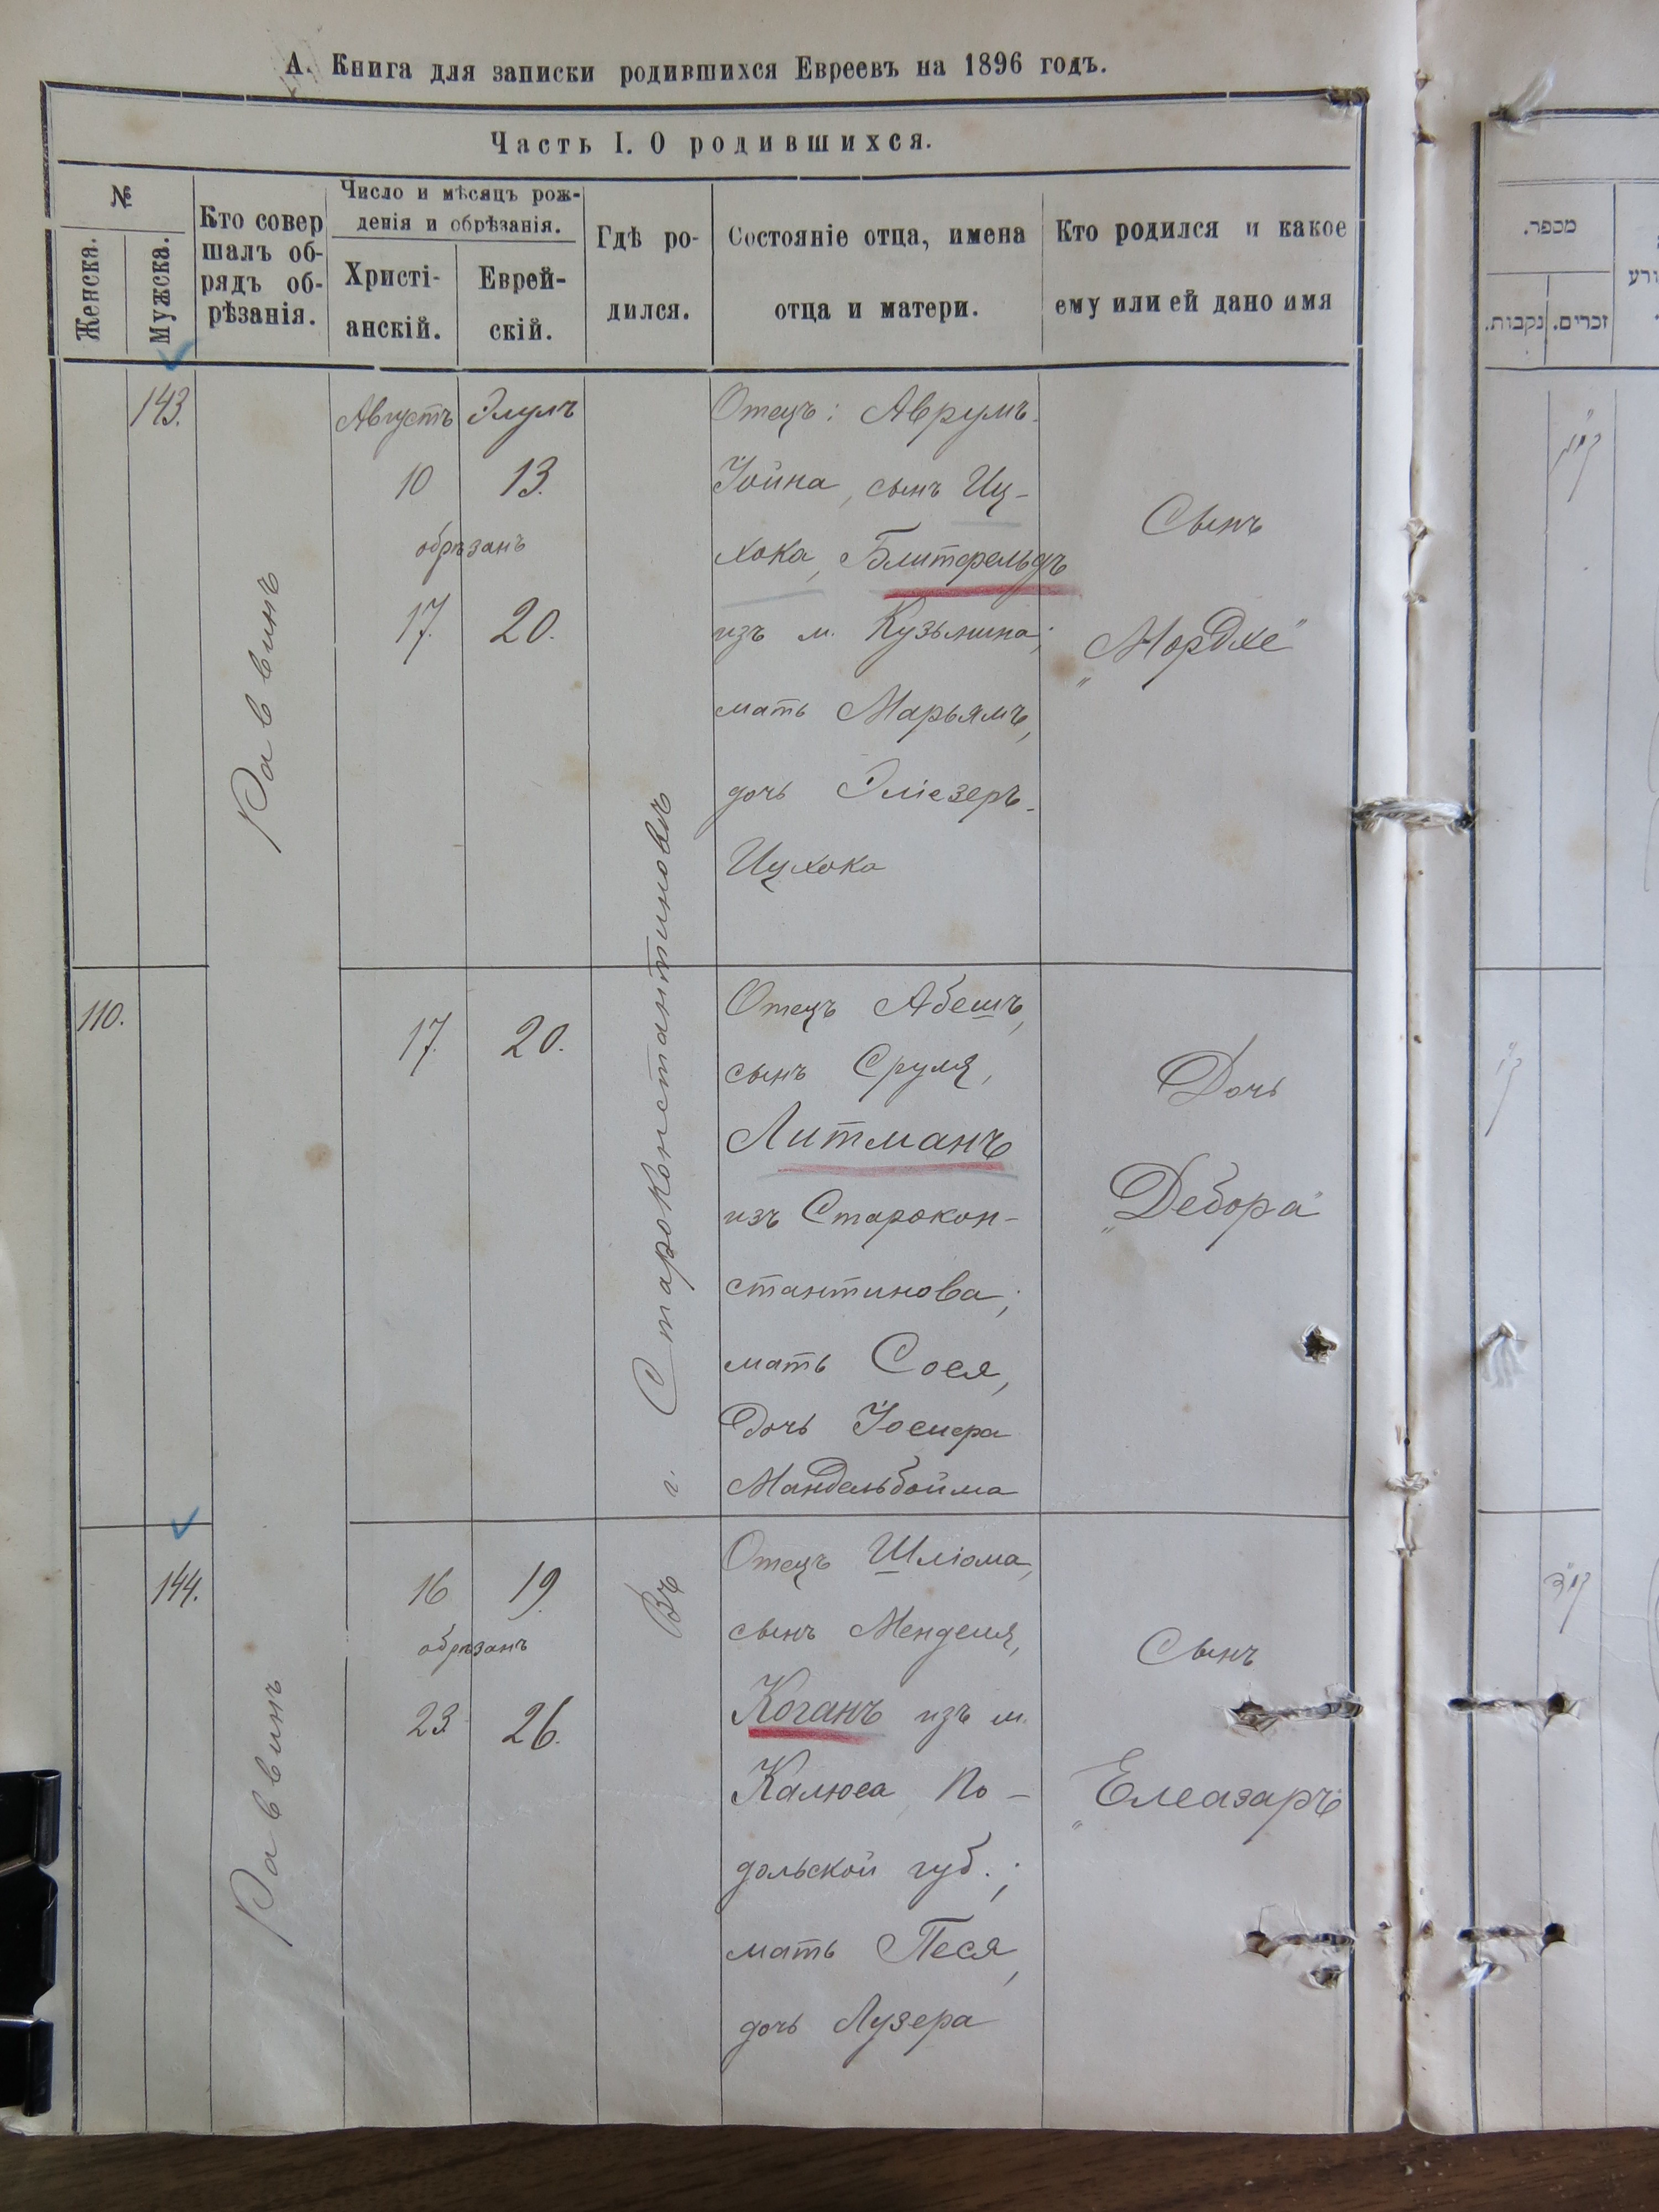 А. Книга для записки родившихся Евреевъ на 1896 годъ.
Часть I. О родившихся.
№
Женска.
Мужска.
Кто совер
шалъ об-
рядъ об-
рѣзанія.
Число и мѣсяцъ рож-
денія и обрѣзанія.
Христі-
анскій.
Еврей-
скій.
Гдѣ ро-
дился.
Состояніе отца, имена
отца и матери.
Кто родился и какое
ему или ей дано имя
143.
Раввинъ
Августъ Элулъ
10 13.
обрѣзанъ
17. 20.
Въ г. Староконстантиновѣ
Отецъ: Аврумъ-
Іойна, сынъ Иц-
хока, Блитфельдъ
изъ м. Кузьмина;
мать Марьямъ,
дочь Эліезеръ-
Ицхока
Сынъ
„Мордхе"
110.
17. 20.
Отецъ Абешъ,
сынъ Сруля,
Литманъ
изъ Старокон-
стантинова;
мать Сося,
дочь Іосифа
Мандельбойма
Дочь
„Дебора"
144.
Раввинъ
16 19.
обрѣзанъ
23 26.
Отецъ Шліома,
сынъ Менделя,
Коганъ изъ м.
Калюса По-
дольской губ.;
мать Песя,
дочь Лузера
Сынъ
„Елеазаръ"
מכפר.
זכרים.
נקבות.
קמ"ג
ק"י
קמ"ד